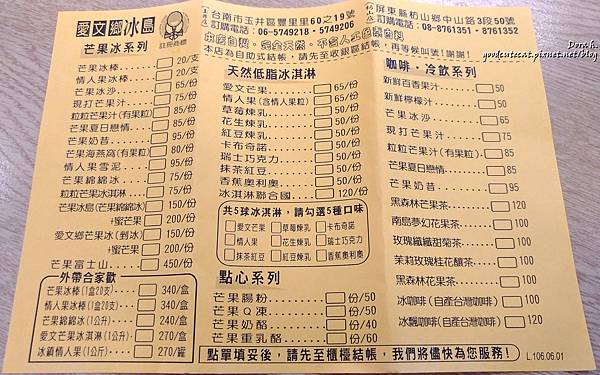 愛文鄉冰島
註冊商標
玉井店
台南市玉井區豐里里60之19號
訂購電話:06-5749218 - 5749206
枋山店
屏東縣枋山鄉中山路3段50號
訂購電話:08-8761351 / 8761352
本店自製,完全天然,不含人工
本店為自助式結帳,請先至收銀區結帳,再等候叫號!謝謝!
Dorah.
yoodcutecat.pixnet.net/blog
芒果冰系列
芒果冰棒 20/支
情人果冰棒 20/支
芒果冰沙 65/份
現打芒果汁 75/份
粒粒芒果汁(有果粒) 85/份
芒果夏日戀情 85/份
芒果奶昔 90/份
芒果海燕窩(有果粒) 80/份
情人果雪泥 95/份
芒果綿綿冰 75/份
粒粒芒果冰淇淋 75/份
芒果冰島(芒果綿綿冰) 150/份
+蜜芒果 200/份
愛文鄉芒果冰(剉冰) 150/份
+蜜芒果 200/份
芒果富士山 450/份
外帶合家歡
芒果冰棒(1盒20支) 340/盒
情人果冰棒(1盒20支) 340/盒
芒果綿綿冰(1公升) 240/盒
愛文芒果冰淇淋(1公升) 270/盒
冰鎮情人果(1公斤) 270/罐
天然低脂冰淇淋
愛文芒果 65/份
情人果(含情人果粒) 65/份
草莓煉乳 50/份
花生煉乳 50/份
紅豆煉乳 50/份
卡布奇諾 50/份
瑞士巧克力 50/份
抹茶紅豆 50/份
香蕉奧利奧 50/份
冰淇淋聯合國 120/份
共5球冰淇淋,請勾選5種口味
愛文芒果 草莓煉乳 卡布奇諾
情人果 花生煉乳 瑞士巧克力
抹茶紅豆 紅豆煉乳 香蕉奧利奧
點心系列
芒果腸粉 份/50
芒果Q凍 份/50
芒果奶酪 份/40
芒果重乳酪 份/60
咖啡.冷飲系列
新鮮百香果汁 50
新鮮檸檬汁 50
芒果冰沙 65
現打芒果汁 75
粒粒芒果汁(有果粒) 85
芒果夏日戀情 85
芒果奶昔 95
黑森林芒果茶 100
南島夢幻花果茶 100
玫瑰纖纖甜菊茶 100
茉莉玫瑰桂花釀茶 100
黑森林花果茶 100
冰咖啡(自產台灣咖啡) 100
冰飄咖啡(自產台灣咖啡) 120
點單填妥後,請先至櫃檯結帳,我們將儘快為您服務!
L.106.06.01